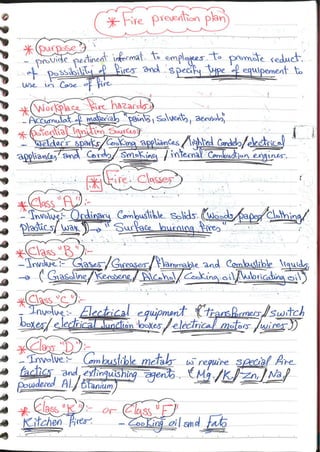 * Fire prevention plan
* purpose :-
- provide pertinent informat. to employees to promote reduct.
of possibility of fires and specify type of equipement to
use in Case of fire
* Workplace fire hazards
- Accumulat. of materials "paints, Solvents, aerosols
* potential Ignition Sources
- welder's sparks / Cooking appliances / lighted Candels / electrical
appliances, and Cords / Smoking / internal Combustion engines.
* Fire Classes
* Class "A" :-
- Involve:- Ordinary Combustible Solids. (Woods / paper / Clothing /
plastics / wax) → "Surface burning fires"
* Class "B" :-
- Involve:- Gases / Greases / Flammable and Combustible liquids
→ (Gasoline / Kerosene / Alcohol / Cooking oil / lubricating oil)
* Class "C" :-
- Involve:- Electrical equipment (transformers / switch
boxes / electrical Junction boxes / electrical motors / wires))
* Class "D" :-
- Involve:- Combustible metals w require special fire
tactics and extinguishing agents. (Mg. / K / Zn. / Na /
powdered Al. / titanium)
* Class "K" :- or Class "F"
Kitchen fires - Cooking oil and Fats